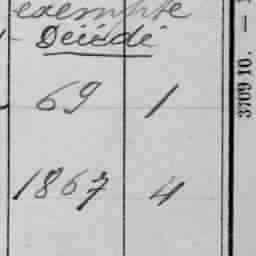 exempte
Décédé
69 1
1867 4
3709 10. —